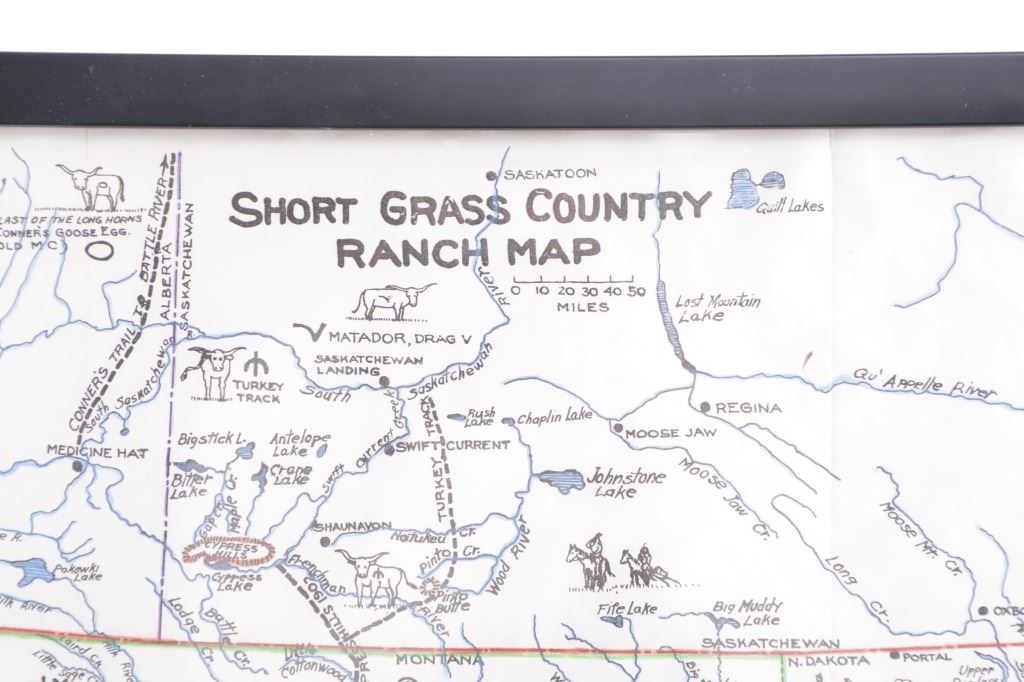 SASKATOON
SHORT GRASS COUNTRY
RANCH MAP
0 10 20 30 40 50
MILES
Quill Lakes
LAST OF THE LONG HORNS
CONNER'S GOOSE EGG.
OLD MC
BATTLE RIVER
ALBERTA
SASKATCHEWAN
CONNER'S TRAIL TO
South Saskatchewan R.
MEDICINE HAT
River
Lost Mountain
Lake
MATADOR, DRAG V
SASKATCHEWAN
LANDING
TURKEY
TRACK
South
Saskatchewan
Qu'Appelle River
REGINA
MOOSE JAW
Rush
Lake
Chaplin Lake
Bigstick L.
Antelope
Lake
Crane
Lake
Bitter
Lake
Maple Cr.
Swift
Current
Creek
SWIFT CURRENT
TURKEY
TRACK
Johnstone
Lake
Moose Jaw Cr.
Moose Mt. Cr.
SHAUNAVON
Notukeu Cr.
Pinto Cr.
Wood River
CYPRESS
HILLS
Cypress
Lake
Frenchman
River
Pinto
Butte
Pakowki
Lake
Milk River
Lodge Cr.
Battle
Cr.
Fife Lake
Big Muddy
Lake
Long
Cr.
OXBO
SASKATCHEWAN
MONTANA
N. DAKOTA
PORTAL
Upper
Laird Cr.
Little Sage Cr.
Milk River
Little
Cottonwood
Big